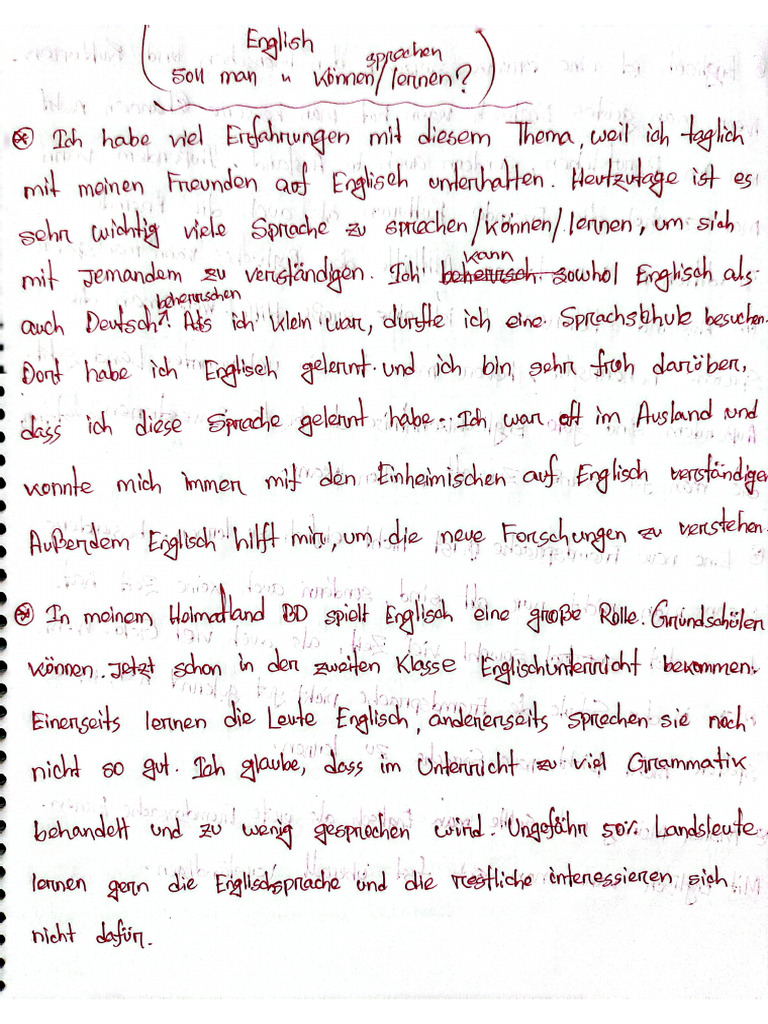 English
sprechen
Soll man " können/lernen?
Ich habe viel Erfahrungen mit diesem Thema, weil ich täglich
mit meinen Freunden auf Englisch unterhalten. Heutzutage ist es
sehr wichtig viele Sprache zu sprechen/können/lernen, um sich
mit Jemandem zu verständigen. Ich kann beherrsch sowohl Englisch als
auch Deutsch beherrschen. Als ich klein war, durfte ich eine Sprachschule besuchen.
Dort habe ich Englisch gelernt und ich bin sehr froh darüber,
dass ich diese Sprache gelernt habe. Ich war oft im Ausland und
konnte mich immer mit den Einheimischen auf Englisch verständigen
Außerdem Englisch hilft mir, um die neue Forschungen zu verstehen.
In meinem Heimatland BD spielt Englisch eine große Rolle. Grundschüler
können jetzt schon in der zweiten Klasse Englischunterricht bekommen.
Einerseits lernen die Leute Englisch, andererseits sprechen sie noch
nicht so gut. Ich glaube, dass im Unterricht zu viel Grammatik
behandelt und zu wenig gesprochen wird. Ungefähr 50% Landsleute
lernen gern die Englischsprache und die restliche interessieren sich
nicht dafür.